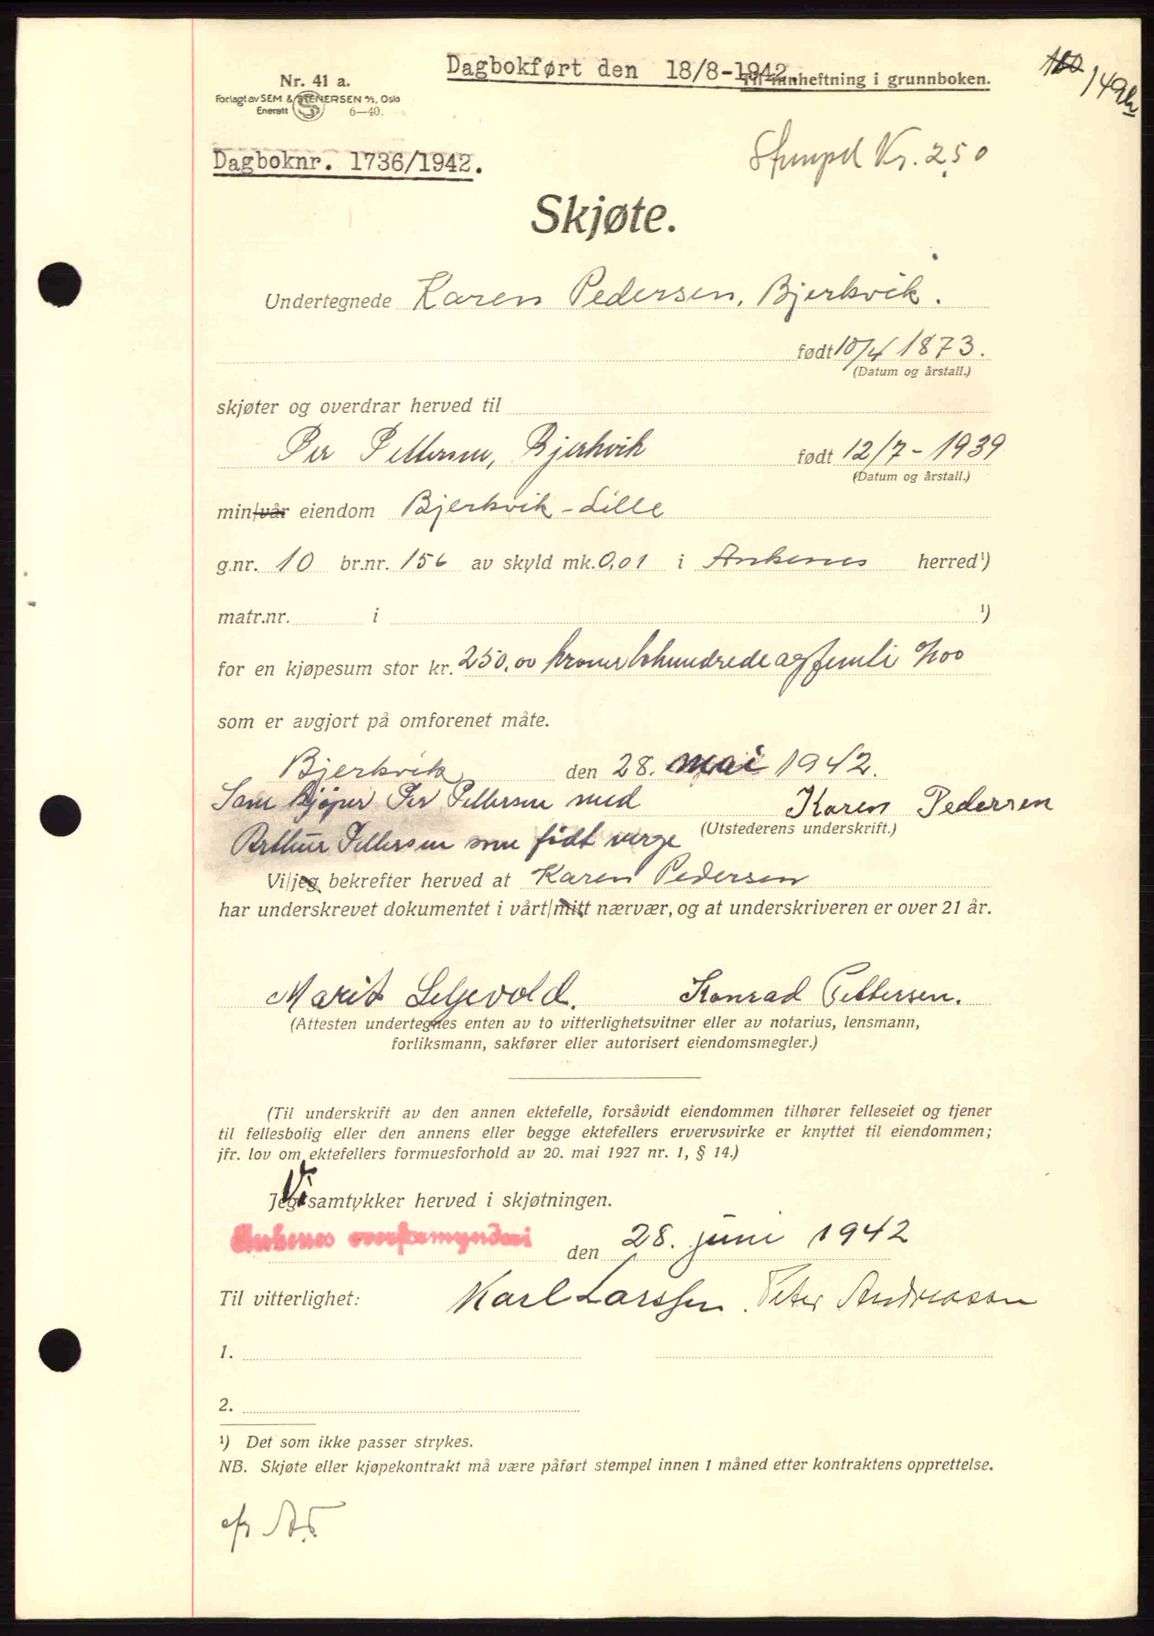 Dagbokført den 18/8-1942.
Til innheftning i grunnboken.
149
Nr. 41 a.
Forlagt av SEM & STENERSEN A/S, Oslo
Enerett 6—40.
Dagboknr. 1736/1942.
Stempel Kr. 2,50
Skjøte.
Undertegnede Karen Pedersen, Bjerkvik.
født 10/4 1873.
(Datum og årstall.)
skjøter og overdrar herved til
Per Pettersen, Bjerkvik født 12/7-1939
(Datum og årstall.)
min/vår eiendom Bjerkvik-Lille
g.nr. 10 br.nr. 156 av skyld mk. 0,01 i Ankenes herred¹)
matr.nr. i ¹)
for en kjøpesum stor kr. 250,00 kroner tohundredeogfemti %oo
som er avgjort på omforenet måte.
Bjerkvik den 28. mai 1942.
Som kjøper Per Pettersen med Karen Pedersen
(Utstederens underskrift.)
Arthur Pettersen som født verge
Vi/jeg bekrefter herved at Karen Pedersen
har underskrevet dokumentet i vårt/mitt nærvær, og at underskriveren er over 21 år.
Marit Konrad Pettersen.
(Attesten undertegnes enten av to vitterlighetsvitner eller av notarius, lensmann,
forliksmann, sakfører eller autorisert eiendomsmegler.)
(Til underskrift av den annen ektefelle, forsåvidt eiendommen tilhører felleseiet og tjener
til fellesbolig eller den annens eller begge ektefellers ervervsvirke er knyttet til eiendommen;
jfr. lov om ektefellers formuesforhold av 20. mai 1927 nr. 1, § 14.)
Vi
Jeg samtykker herved i skjøtningen.
Ankenes overformynderi den 28. juni 1942
Til vitterlighet: Karl Larssen. Peter Andreasen
1.
2.
¹) Det som ikke passer strykes.
NB. Skjøte eller kjøpekontrakt må være påført stempel innen 1 måned etter kontraktens opprettelse.